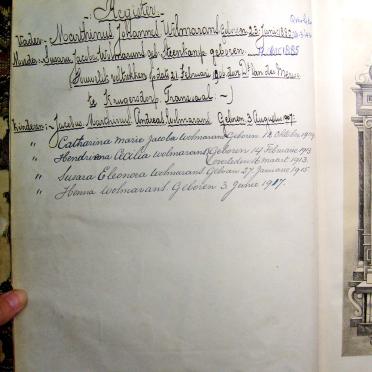 -: Register :-
Vader:- Marthinus Johannes Wolmarans Geboren 23 Junie 1882
Moeder:- Susara Jacoba Wolmarans geb. Steenkamp geboren 1885
(Huwelik voltrokken op 21 Februari door Ds. P. van der Merwe
te Krugersdorp, Transvaal. -)
Kinderen:- Jacobus Marthinus Andreas Wolmarans Geboren 3 Augustus 1907.
" Catharina Maria Jacoba Wolmarans Geboren 12 Oktober
" Hendriena Cecilia Wolmarans Geboren 14 Februarie 1913
Overleden Maart 1913.
" Susara Eleonora Wolmarans Geboren 27 Januarie 1915.
" Henna Wolmarans Geboren 3 Junie 1917.